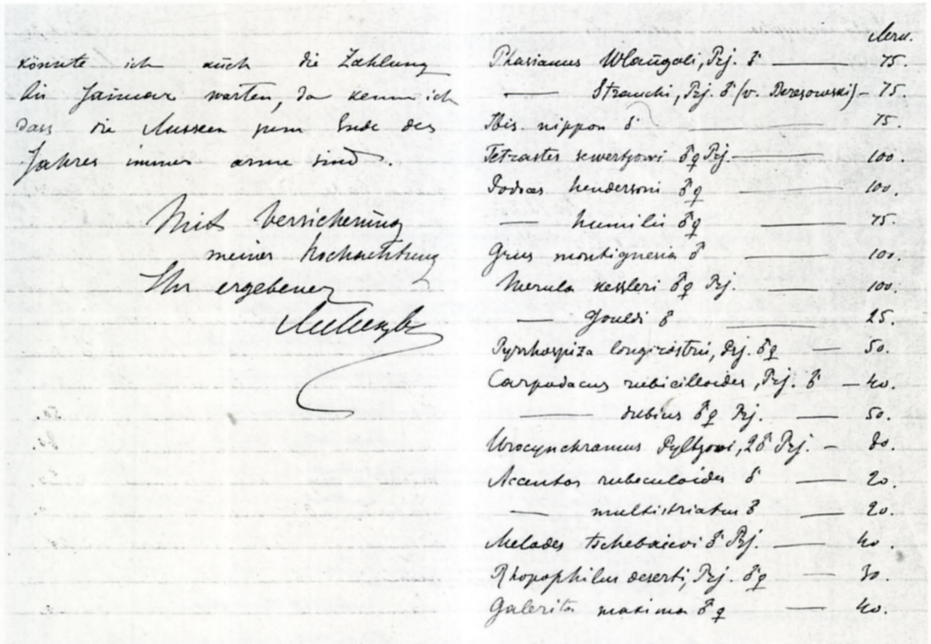 könnte ich auch die Zahlung
bis Januar warten, da kenn ich
dass die Museen zum Ende des
Jahres immer arme sind.
Mit Versicherung
meiner Hochachtung
Ihr ergebener
Phasianus Wlangali, Prj. ♂ — 75.
— Strauchi, Prj. ♂ (v. Beresowski) — 75.
Ibis nippon ♂ — 75.
Tetrastes sewertzowi ♂♀ Prj. — 100.
Podoces hendersoni ♂♀ — 100.
— humilis ♂♀ — 75.
Grus montignesia ♂ — 100.
Merula kessleri ♂♀ Prj. — 100.
— Gouldi ♂ — 25.
Pyrrhospiza longirostris, Prj. ♂♀ — 50.
Carpodacus rubicilloides, Prj. ♂ — 40.
— dubius ♂♀ Prj. — 50.
Urocynchramus Pyltzowi, 2♂ Prj. — 80.
Accentor rubeculoides ♂ — 20.
— multistriatus ♂ — 20.
tschebaiewi ♂ Prj. — 40.
Rhopophilus deserti, Prj. ♂♀ — 30.
Galerita maxima ♂♀ — 40.